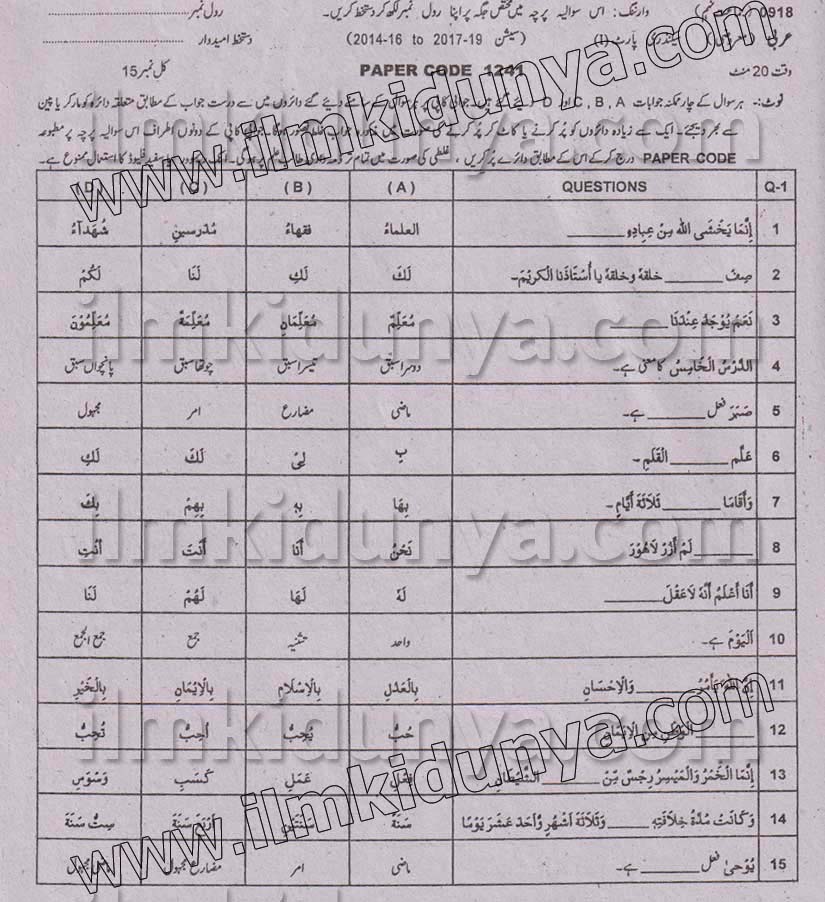 0918 وارننگ: اس سوالیہ پرچہ میں مختص جگہ پر اپنا رول نمبر لکھ کر دستخط کریں۔ رول نمبر
عربی پارٹ (I) (سیشن 2014-16 to 2017-19) دستخط امیدوار
وقت 20 منٹ PAPER CODE 1241 کل نمبر 15
نوٹ:- ہر سوال کے چار ممکنہ جوابات A, B, C اور D دئیے گئے ہیں۔ جوابی کاپی پر ہر سوال کے سامنے دئیے گئے دائروں میں سے درست جواب کے مطابق متعلقہ دائرہ کو مارکر یا پین
سے بھر دیجئے۔ ایک سے زیادہ دائروں کو پُر کرنے یا کاٹ کر پُر کرنے کی صورت میں مذکورہ جواب غلط تصور ہوگا۔ جوابی کاپی کے دونوں اطراف اس سوالیہ پرچہ پر مطبوعہ
PAPER CODE درج کر کے اس کے مطابق دائرے پُر کریں، غلطی کی صورت میں تمام تر ذمہ داری طالب علم پر ہوگی۔ سفید فلیوڈ کا استعمال ممنوع ہے۔
Q-1 QUESTIONS (A) (B) (C) (D)
1 إِنَّمَا يَخْشَى الله مِنْ عِبَادِهِ ______ العلماءُ فقهاءُ مُدَرسينَ شُهَدآءُ
2 صِفْ ______ خلقهٗ وخلقهٗ يا اُسْتَاذَنا الكريمَ۔ لَكَ لَكِ لَنَا لَكُمْ
3 نَعَمْ يُوْجَدُ عِنْدَنَا ______ مُعَلِّمٌ مُعَلِّمَانِ مُعَلِّمَةٌ مُعَلِّمُوْنَ
4 الدَّرْسُ الْخَامِسُ کا معنی ہے۔ دوسرا سبق تیسرا سبق چوتھا سبق پانچواں سبق
5 صَبَرَ فعل ______ ہے۔ ماضی مضارع امر مجہول
6 عَلَّمَ ______ الْقَلَمِ۔ بِ لِیْ لَكَ لَكِ
7 وَأَقَامَا ______ ثَلَاثَةَ أَيَّامٍ۔ بِهَا بِهِ بِهِمْ بِكَ
8 ______ لَمْ أَزُرْ لَاهُوْرَ نَحْنُ أَنَا أَنْتَ أَنْتِ
9 أَنَا أَعْلَمُ أَنَّهٗ لَاعَقْلَ ______ لَهٗ لَهَا لَهُمْ لَنَا
10 اَلْيَوْمَ ہے۔ واحد تثنیہ جمع جمع الجمع
11 إِنَّ اللهَ يَأْمُرُ ______ وَالْاِحْسَانِ بِالْعَدْلِ بِالْاِسْلَامِ بِالْاِيْمَانِ بِالْخَيْرِ
12 ______ الْوَطَنِ مِنَ الْاِيْمَانِ حُبُّ يُحِبُّ اُحِبُّ تُحِبُّ
13 إِنَّمَا الْخَمْرُ وَالْمَيْسِرُ رِجْسٌ مِّنْ ______ الشَّيْطَانِ فِعْلِ عَمَلِ كَسْبِ وَسْوَسِ
14 وَكَانَتْ مُدَّةُ خِلَافَتِهِ ______ وَثَلَاثَةَ اَشْهُرٍ وَاَحَدَ عَشَرَ يَوْمًا سَنَةً سَنَتَيْنِ سِتَّ سَنَةً
15 يُوْحىٰ فعل ______ ہے۔ ماضی امر مضارع مجہول
www.ilmkidunya.com
ilmkidunya.com
ilmkidunya.com
ilmkidunya.com
ilmkidunya.com
www.ilmkidunya.com